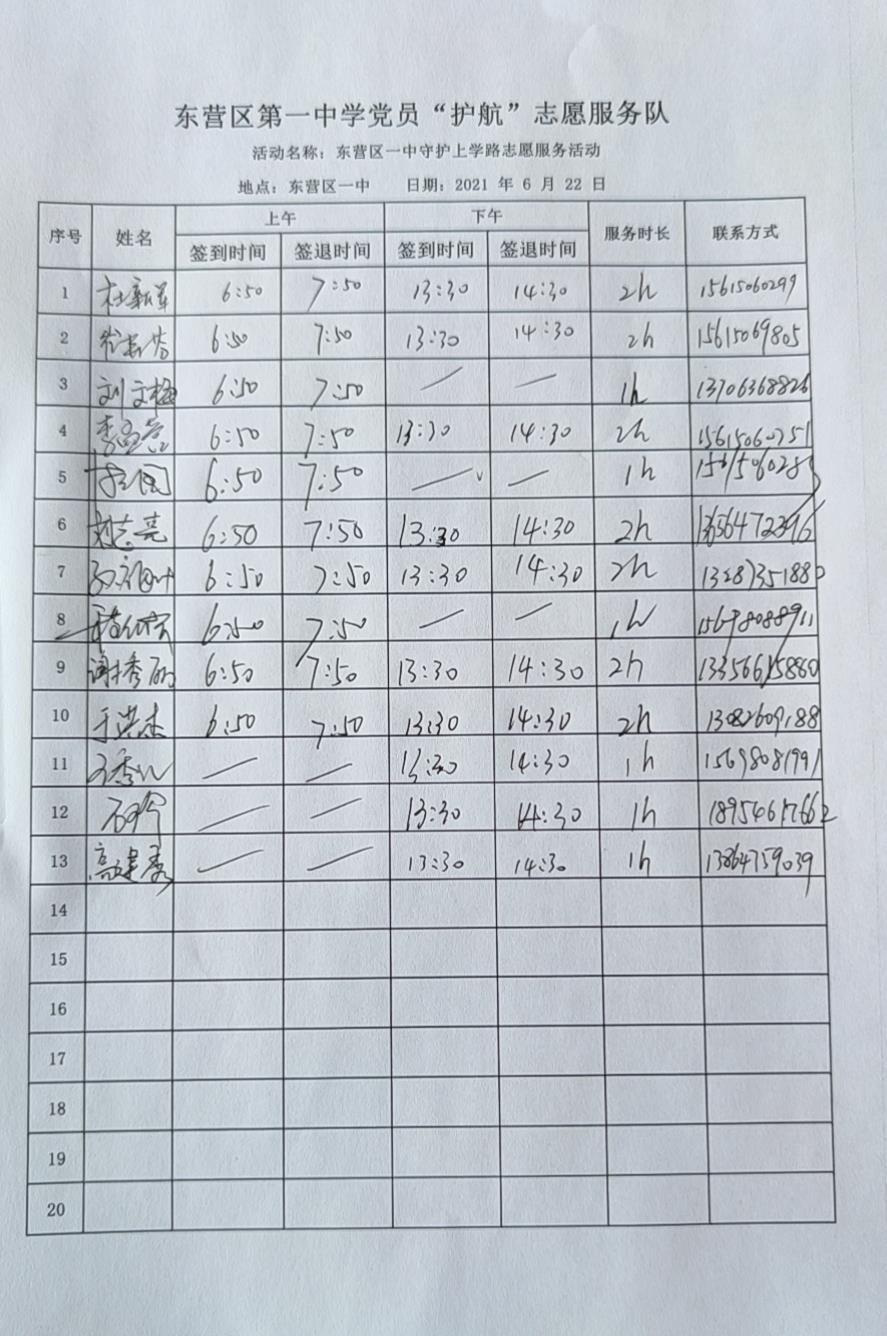 东营区第一中学党员“护航”志愿服务队
活动名称：东营区一中守护上学路志愿服务活动
地点：东营区一中 日期：2021 年 6 月 22 日
序号 姓名 上午 下午 服务时长 联系方式
签到时间 签退时间 签到时间 签退时间
1 杜新军 6:50 7:50 13:30 14:30 2h 15615060299
2 6:50 7:50 13:30 14:30 2h 15615069805
3 刘文梅 6:50 7:50 — — 1h 13706368826
4 6:50 7:50 13:30 14:30 2h 15615060751
5 6:50 7:50 — — 1h
6 刘志亮 6:50 7:50 13:30 14:30 2h
7 6:50 7:50 13:30 14:30 2h
8 6:50 7:50 — — 1h 15698088911
9 谢秀丽 6:50 7:50 13:30 14:30 2h 13356615880
10 于洪杰 6:50 7:50 13:30 14:30 2h 13082609188
11 — — 13:30 14:30 1h 15698081991
12 — — 13:30 14:30 1h 18954617662
13 高建秀 — — 13:30 14:30 1h 13864759039
14
15
16
17
18
19
20